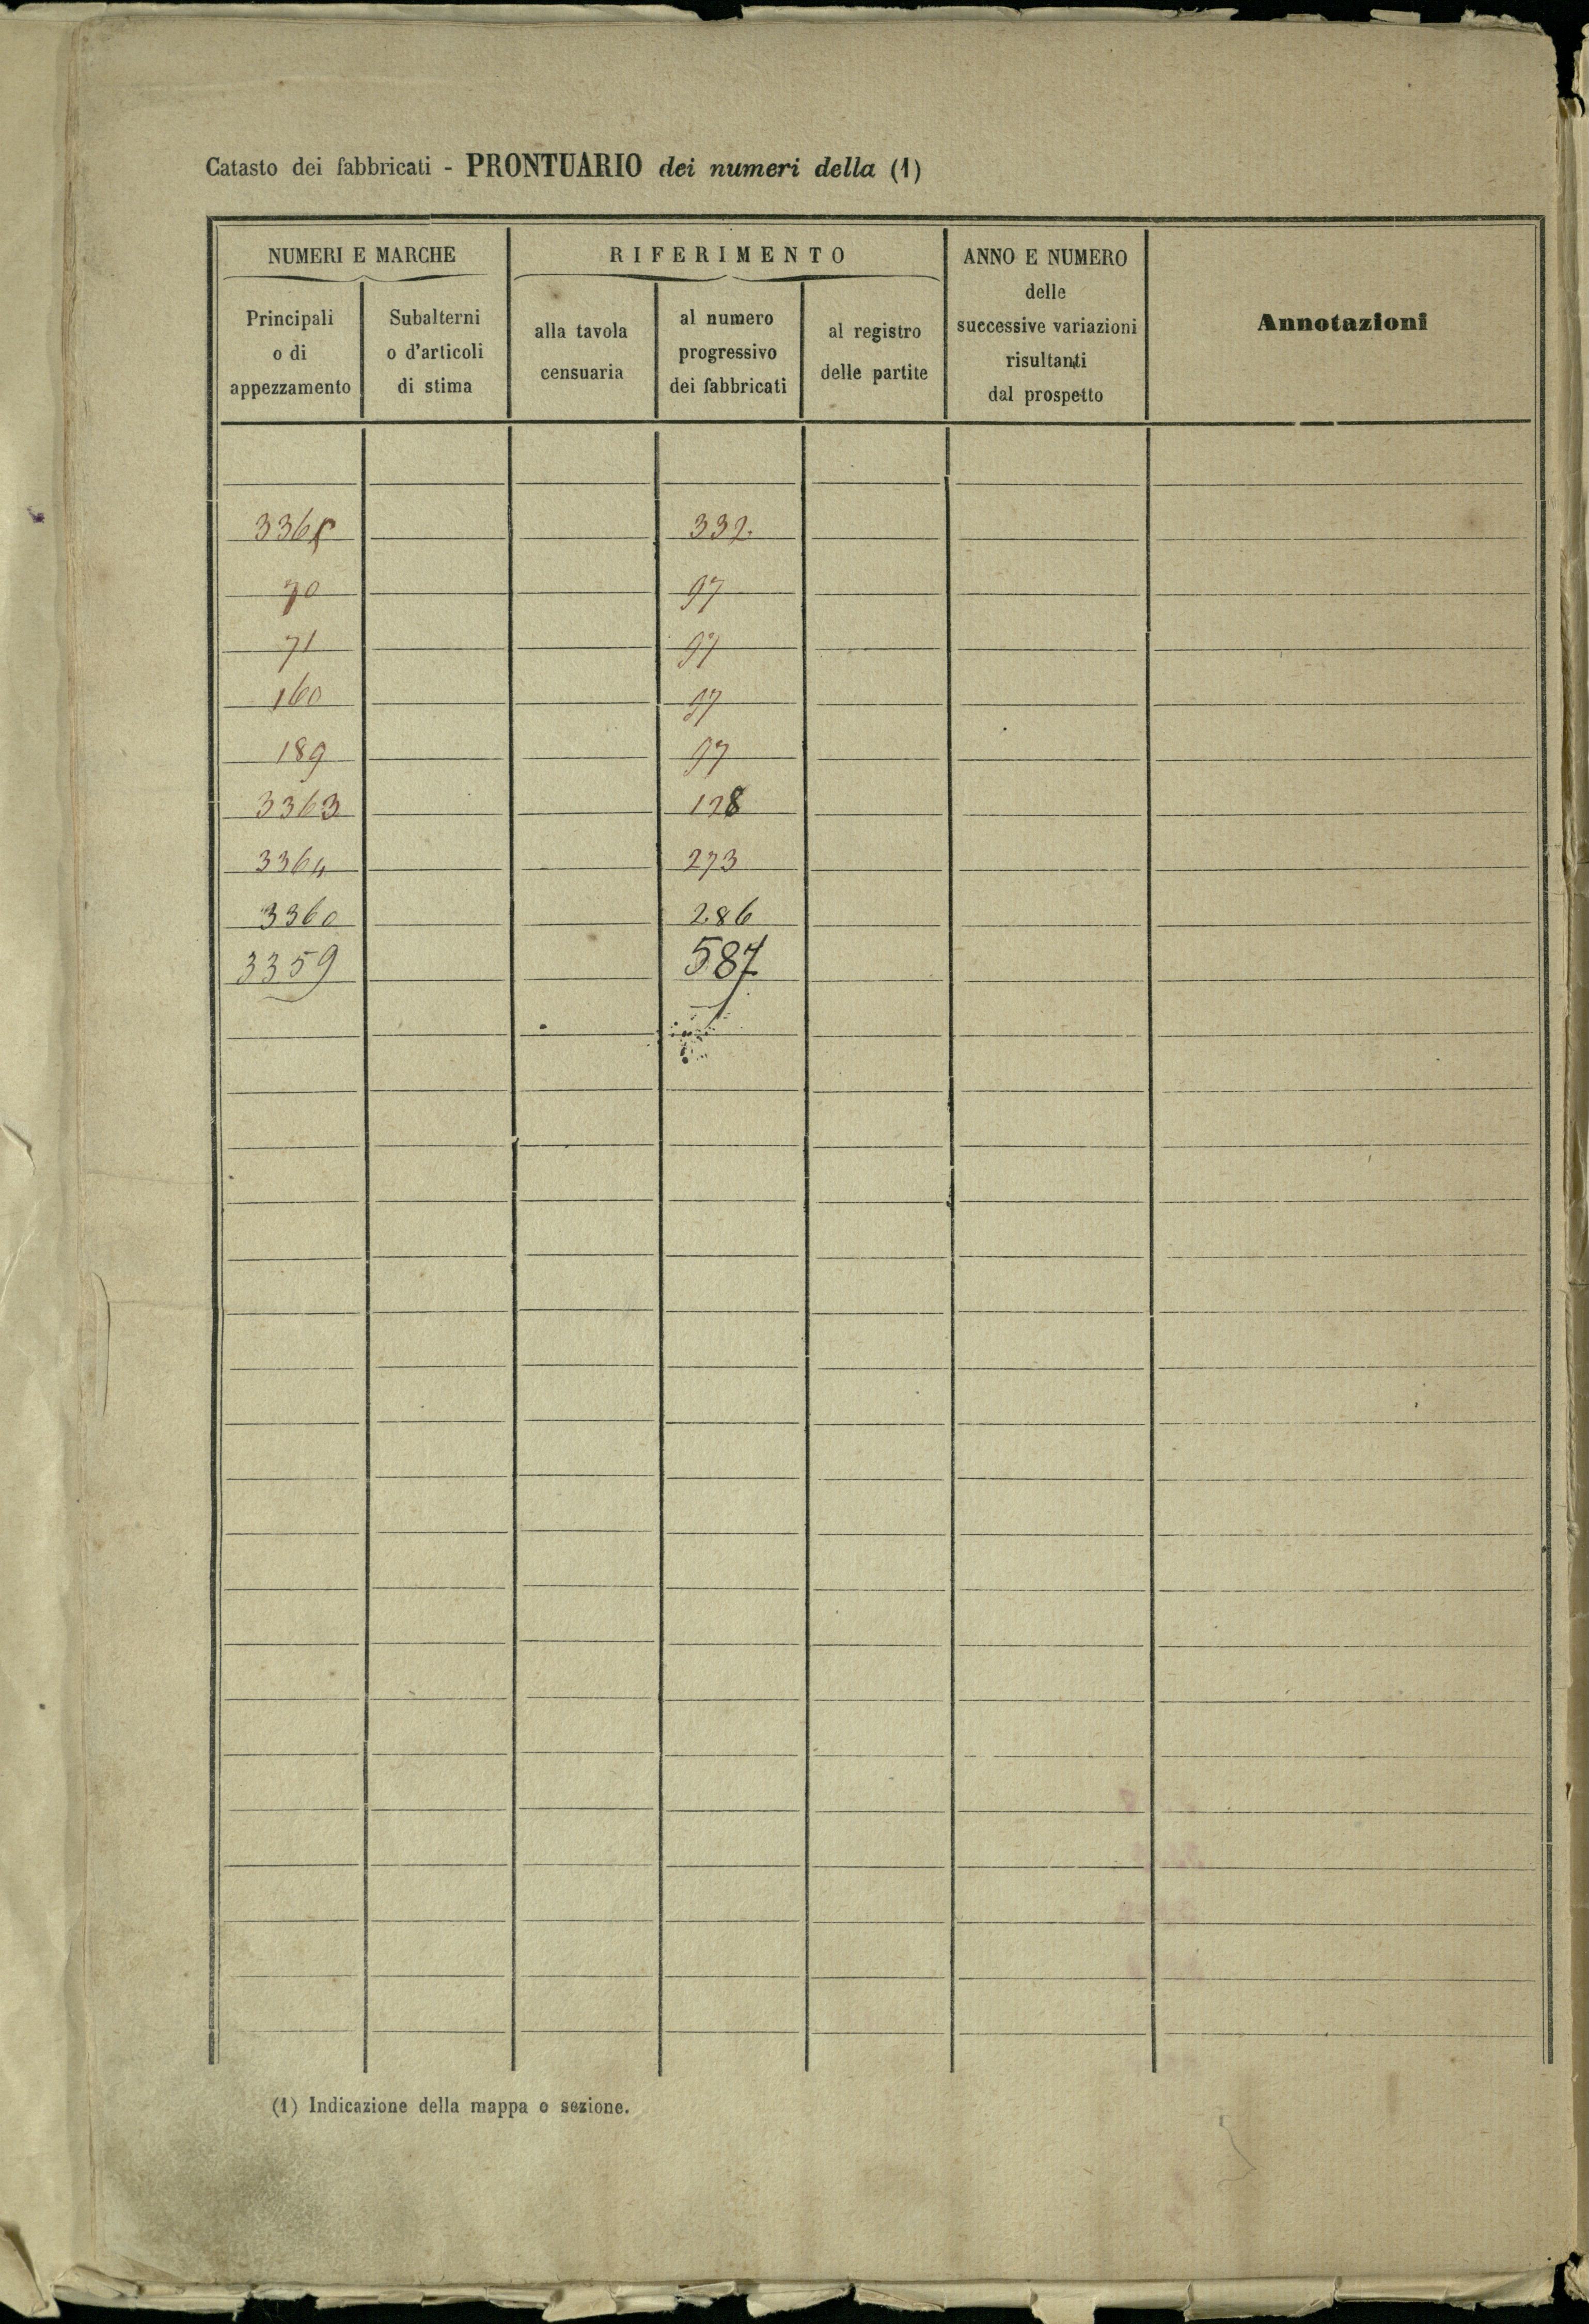 Catasto dei fabbricati - PRONTUARIO dei numeri della (1)
NUMERI E MARCHE
Principali
o di
appezzamento
Subalterni
o d'articoli
di stima
RIFERIMENTO
alla tavola
censuaria
al numero
progressivo
dei fabbricati
al registro
delle partite
ANNO E NUMERO
delle
successive variazioni
risultanti
dal prospetto
Annotazioni
332
70 97
71 97
160 97
189 97
3363 128
3364 273
3360 286
3359 587
(1) Indicazione della mappa o sezione.